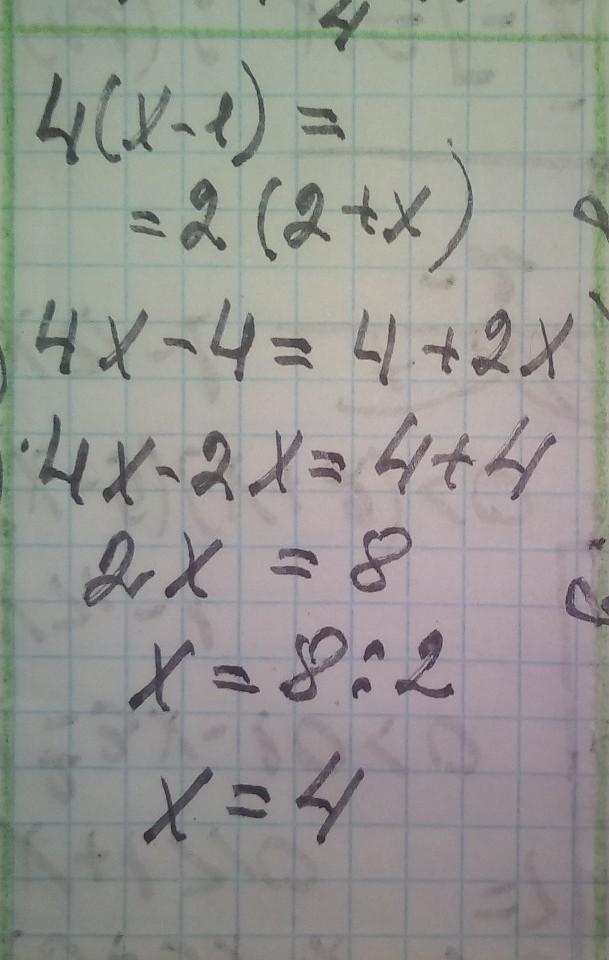 4
4(x-1)=
=2(2+x)
4x-4=4+2x
4x-2x=4+4
2x=8
x=8:2
x=4